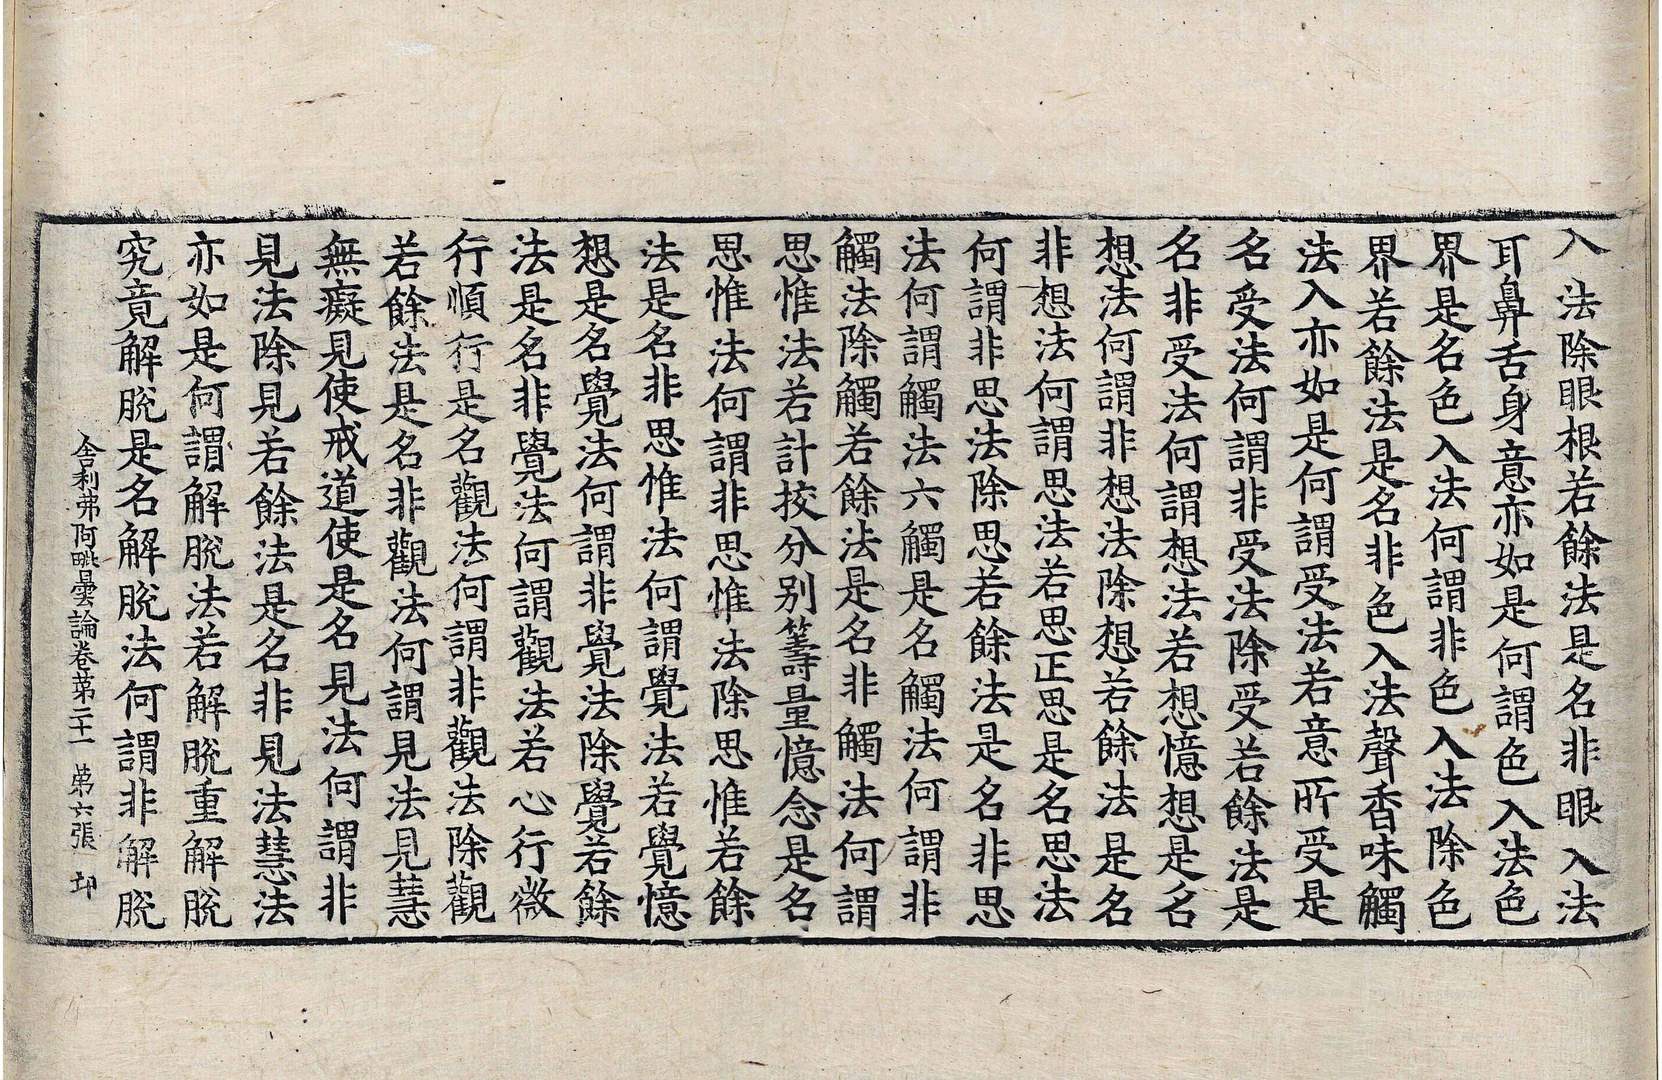 入法除眼根若餘法是名非眼入法
耳鼻舌身意亦如是何謂色入法色
界是名色入法何謂非色入法除色
界若餘法是名非色入法聲香味觸
法入亦如是何謂受法若意所受是
名受法何謂非受法除受若餘法是
名非受法何謂想法若想憶想是名
想法何謂非想法除想若餘法是名
非想法何謂思法若思正思是名思法
何謂非思法除思若餘法是名非思
法何謂觸法六觸是名觸法何謂非
觸法除觸若餘法是名非觸法何謂
思惟法若計挍分别籌量憶念是名
思惟法何謂非思惟法除思惟若餘
法是名非思惟法何謂覺法若覺憶
想是名覺法何謂非覺法除覺若餘
法是名非覺法何謂觀法若心行微
行順行是名觀法何謂非觀法除觀
若餘法是名非觀法何謂見法見慧
無癡見使戒道使是名見法何謂非
見法除見若餘法是名非見法慧法
亦如是何謂解脫法若解脫重解脫
究竟解脫是名解脫法何謂非解脫
舍利弗阿毗曇論卷第二十一 第六張